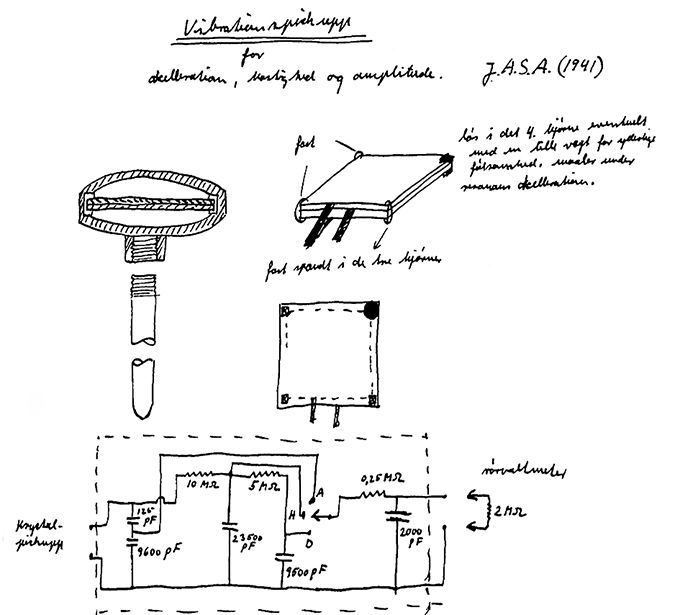 Vibrationspickupp
for
akcelleration, hastighed og amplitude.
J.A.S.A. (1941)
fast
løs i det 4. hjørne eventuelt
med en lille vægt for yderlige
følsomhed. maaler under
resonans akcelleration.
fast spændt i de tre hjørner
10 MΩ
5 MΩ
A
0,25 MΩ
rörvoltmeter
H
2 MΩ
125
pF
Krystal-
pickupp
9600 pF
23500
pF
D
9500 pF
2000
pF